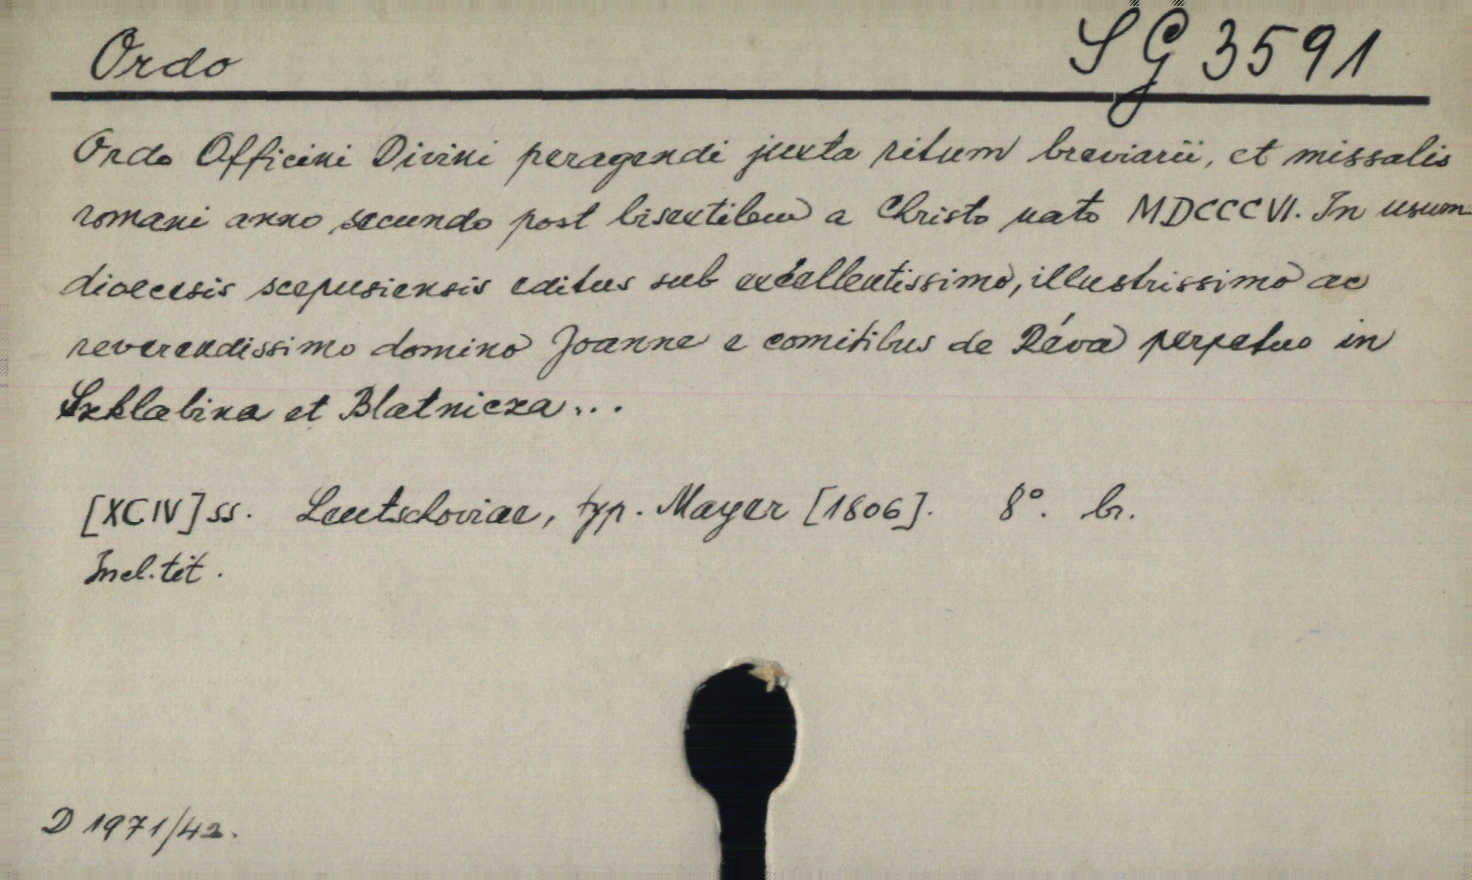 Ordo
SG 3591
Ordo Officini Divini peragendi juxta ritum breviarii, et missalis
romani anno secundo post bisextilem a Christo nato MDCCCVI. In usum
dioecesis scepusiensis editus sub excellentissimo, illustrissimo ac
reverendissimo domino Joanne e comitibus de Réva perpetuo in
Szklabina et Blatnicza...
[XCIV] ss. Leutschoviae, typ. Mayer [1806]. 8°. br.
Incl. tit.
D 1971/42.